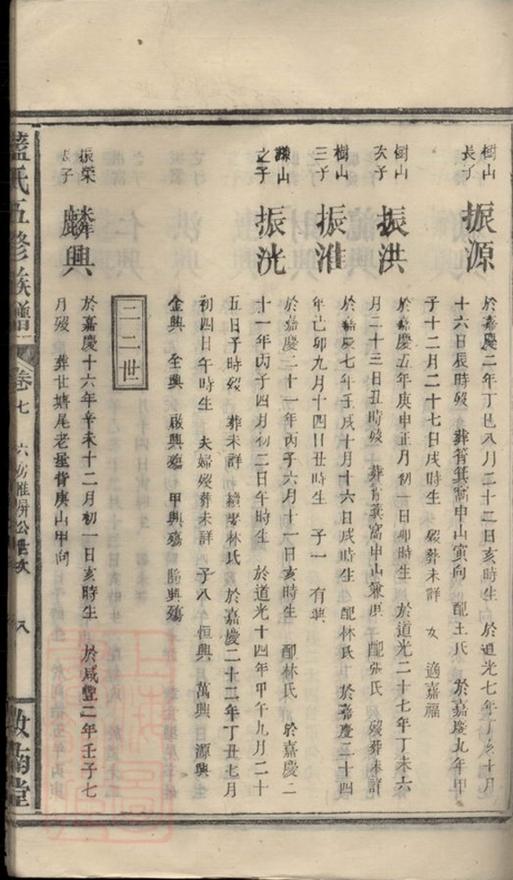 樹山長子 振源 於嘉慶二年丁巳八月二十二日亥時生 於道光七年丁亥十月
十六日辰時歿 葬筲箕窩申山寅向 配王氏 於嘉慶九年甲
子十二月二十七日戌時生 歿葬未詳 女 適嘉福
樹山次子 振洪 於嘉慶五年庚申正月初一日卯時生 於道光二十七年丁未六
月二十三日丑時歿 葬筲箕窩申山兼 配張氏 歿葬未詳
樹山三子 振淮 於嘉慶七年壬戌十月十六日戌時生 配林氏 於嘉慶二十四
年己卯九月十四日丑時生 子一 有興
謙山之子 振洸 於嘉慶二十一年丙子六月十一日亥時生 配林氏 於嘉慶二
十一年丙子四月初二日午時生 於道光十四年甲午九月二十
五日子時歿 葬未詳 續娶林氏 於嘉慶二十二年丁丑七月
初四日午時生 夫婦歿葬未詳 子八 恒興 萬興 日源興
金興 全興 啟興殤 甲興殤 興殤
二二世
振榮長子 麟興 於嘉慶十六年辛未十二月初一日亥時生 於咸豐二年壬子七
月歿 葬廿塘尾老 背庚山甲向
藍氏五修族譜 卷七 六房惟屏公世次 八 敦睦堂